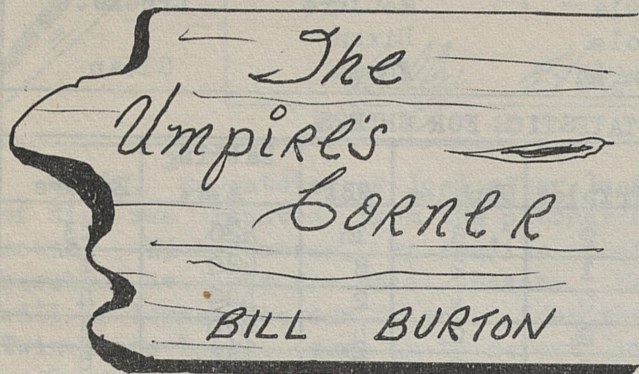 The
Umpire's
Corner
BILL BURTON